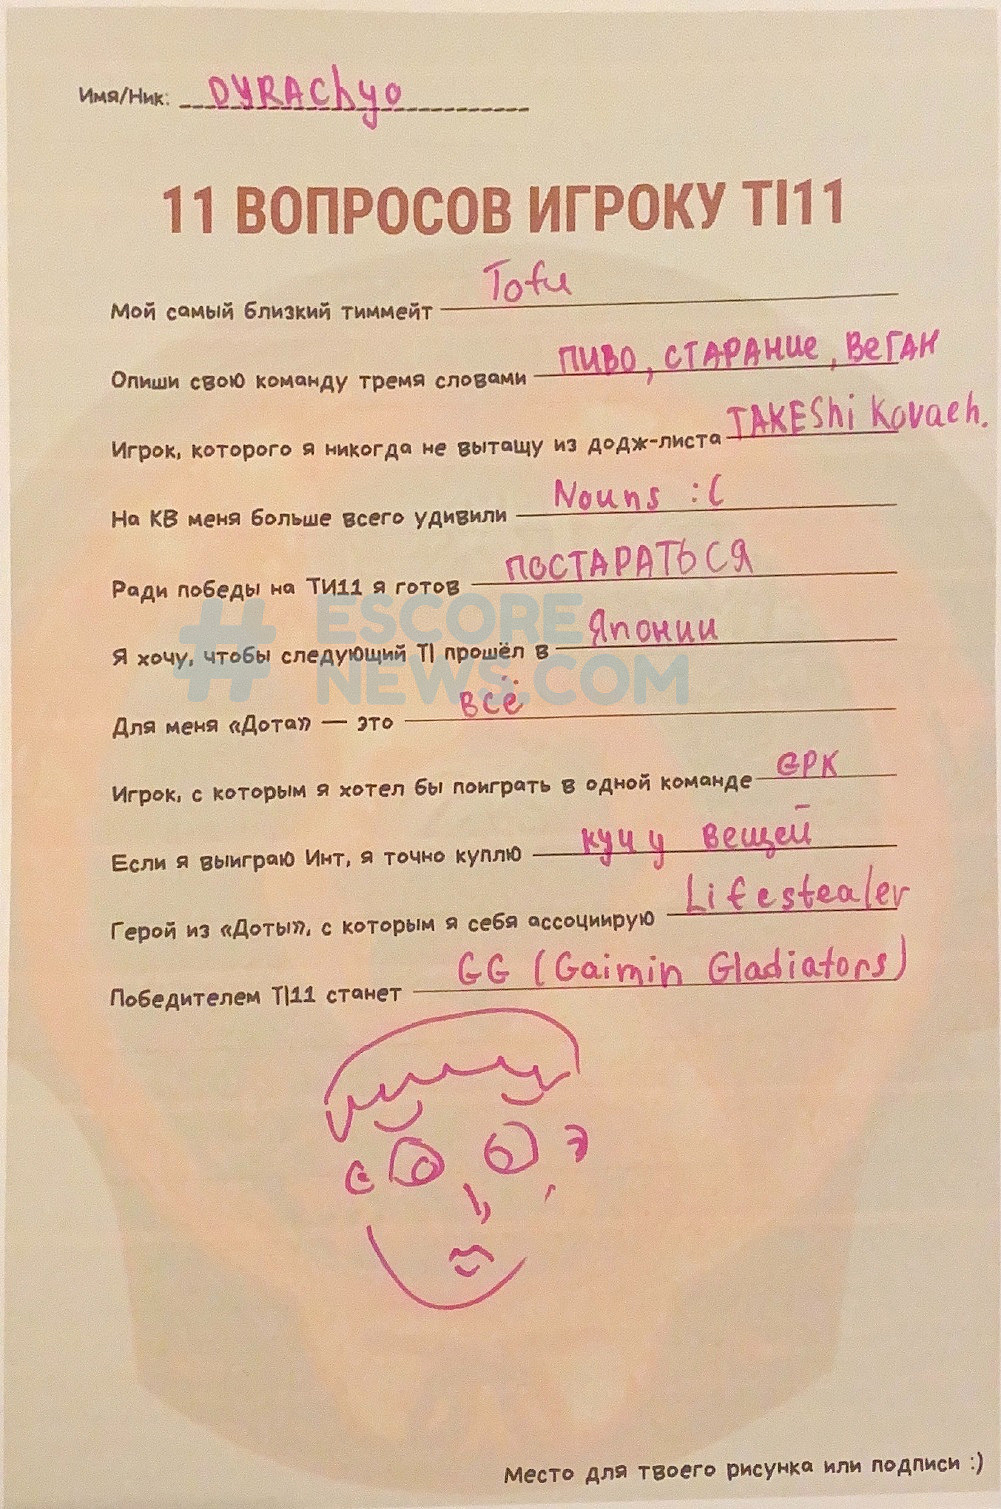 Имя/Ник: DYRAChyo
11 ВОПРОСОВ ИГРОКУ TI11
Мой самый близкий тиммейт Tofu
Опиши свою команду тремя словами ПИВО, СТАРАНИЕ, ВЕГАН
Игрок, которого я никогда не вытащу из додж-листа TAKEShi Kovach.
На КВ меня больше всего удивили Nouns :(
Ради победы на ТИ11 я готов ПОСТАРАТЬСЯ
Я хочу, чтобы следующий TI прошёл в Японии
Для меня «Дота» — это всё
Игрок, с которым я хотел бы поиграть в одной команде GPK
Если я выиграю Инт, я точно куплю кучу вещей
Герой из «Доты», с которым я себя ассоциирую Lifestealer
Победителем TI11 станет GG (Gaimin Gladiators)
# ESCORE
NEWS.COM
Место для твоего рисунка или подписи :)